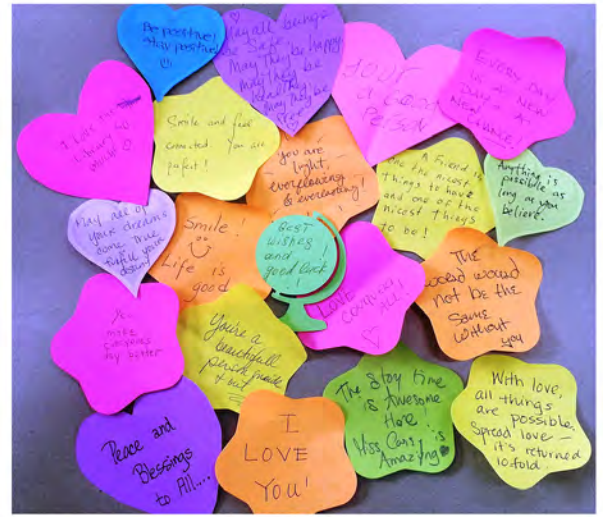 Be positive!
Stay positive!
May all beings
be safe
May They be happy
May they be
Healthy
May they be
YOUR
A GOOD
PERSON
EVERY DAY
IS A NEW
DAY - A
NEW
CHANCE!
I
learn so
much
Smile and feel
connected. You are
perfect!
you are
light,
everflowing
& everlasting!
A Friend is
one the nicest
things to have
and one of the
nicest things
to be!
Anything is
possible as
long as you
believe.
May all of
your dreams
come True
fulfill your
destiny
Smile!
Life is
good
BEST
WISHES!
and
good luck
!
LOVE
CONQUERS
ALL!
The
world would
not be the
same
without
you
make
my better
You're a
beautifull
person inside
& out
The Stay time
is Awesome
Here
Miss Cass, is
Amazing
With love,
all things
are possible.
Spread love –
it's returned
10fold.
Peace and
Blessings
to All....
I
LOVE
YOU!